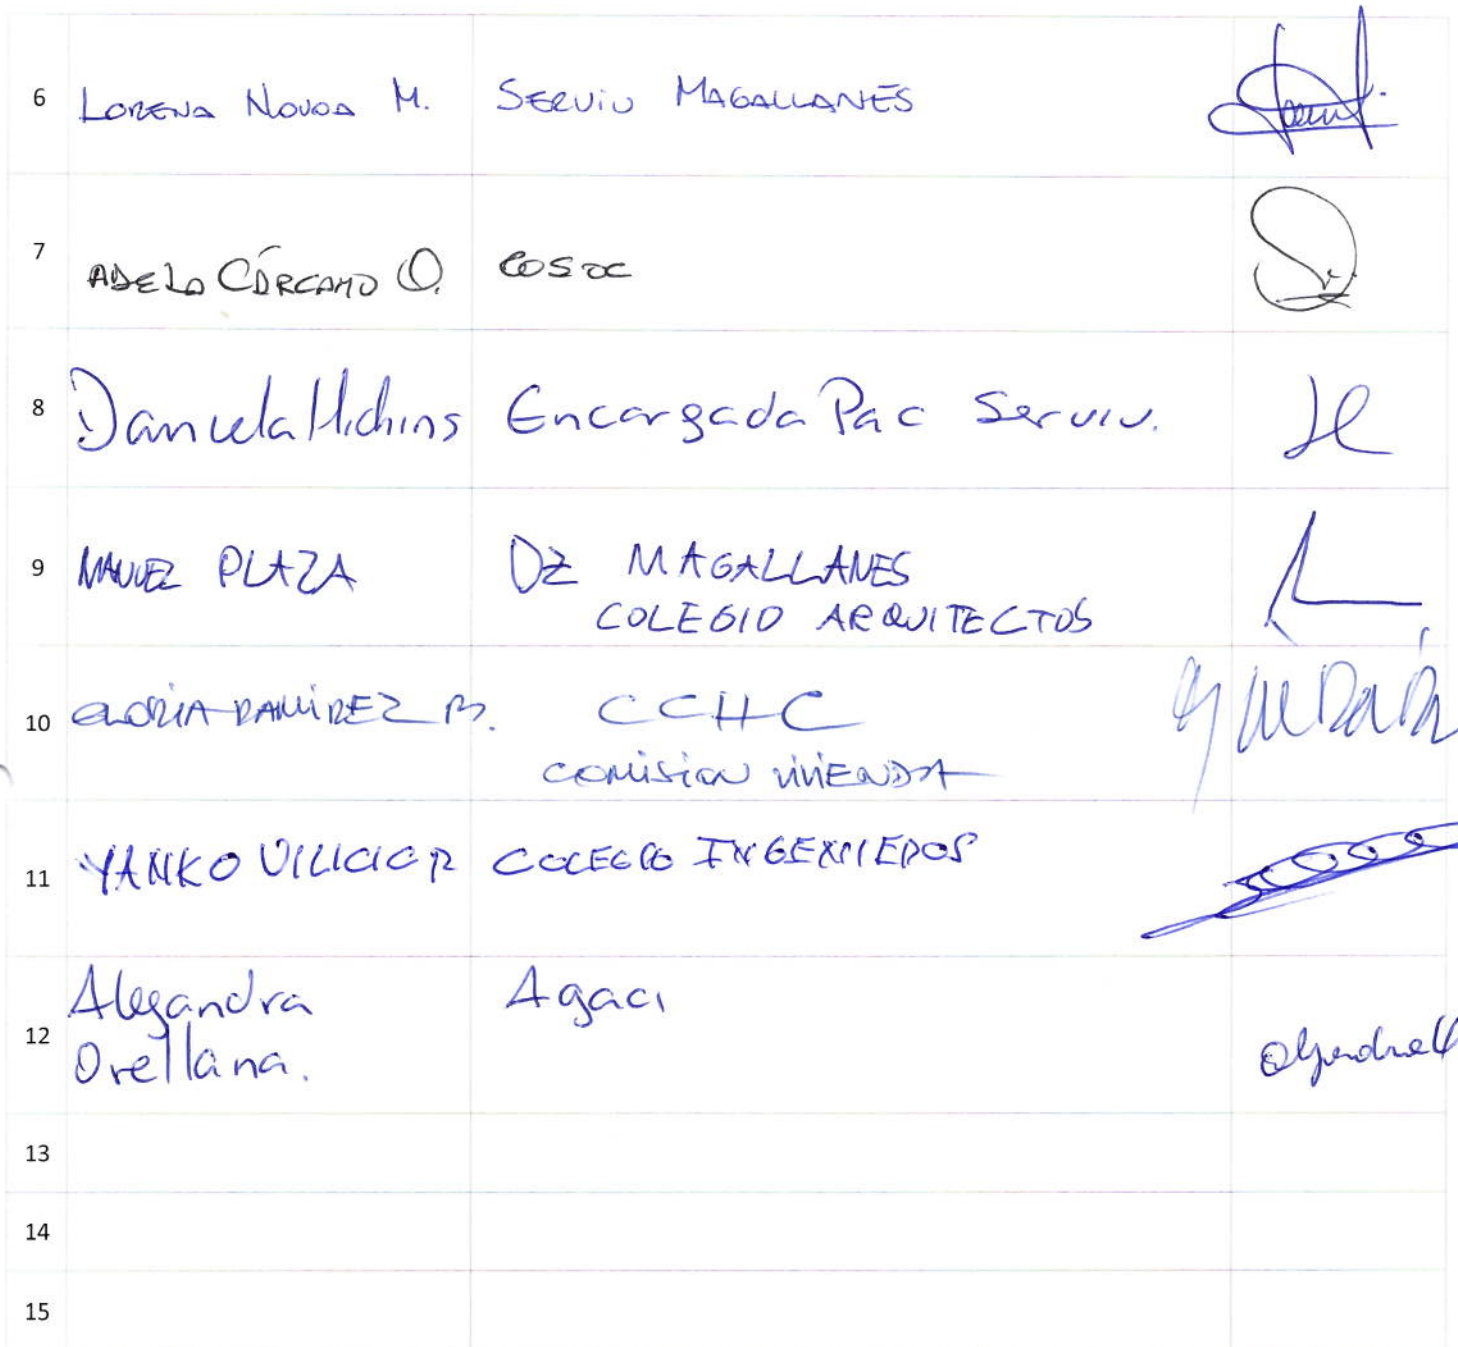 6 LORENA NOVOA M. SERVIU MAGALLANES
7 ADELA CÁRCAMO O. COSOC
8 Daniela Encargada Pac Serviu.
9 MANUEL PLAZA DZ MAGALLANES
COLEGIO ARQUITECTOS
10 GLORIA RAMIREZ B. CCHC
COMISION VIVIENDA
11 YANKO COLEGIO INGENIEROS
12 Alejandra Agaci
Orellana.
13
14
15